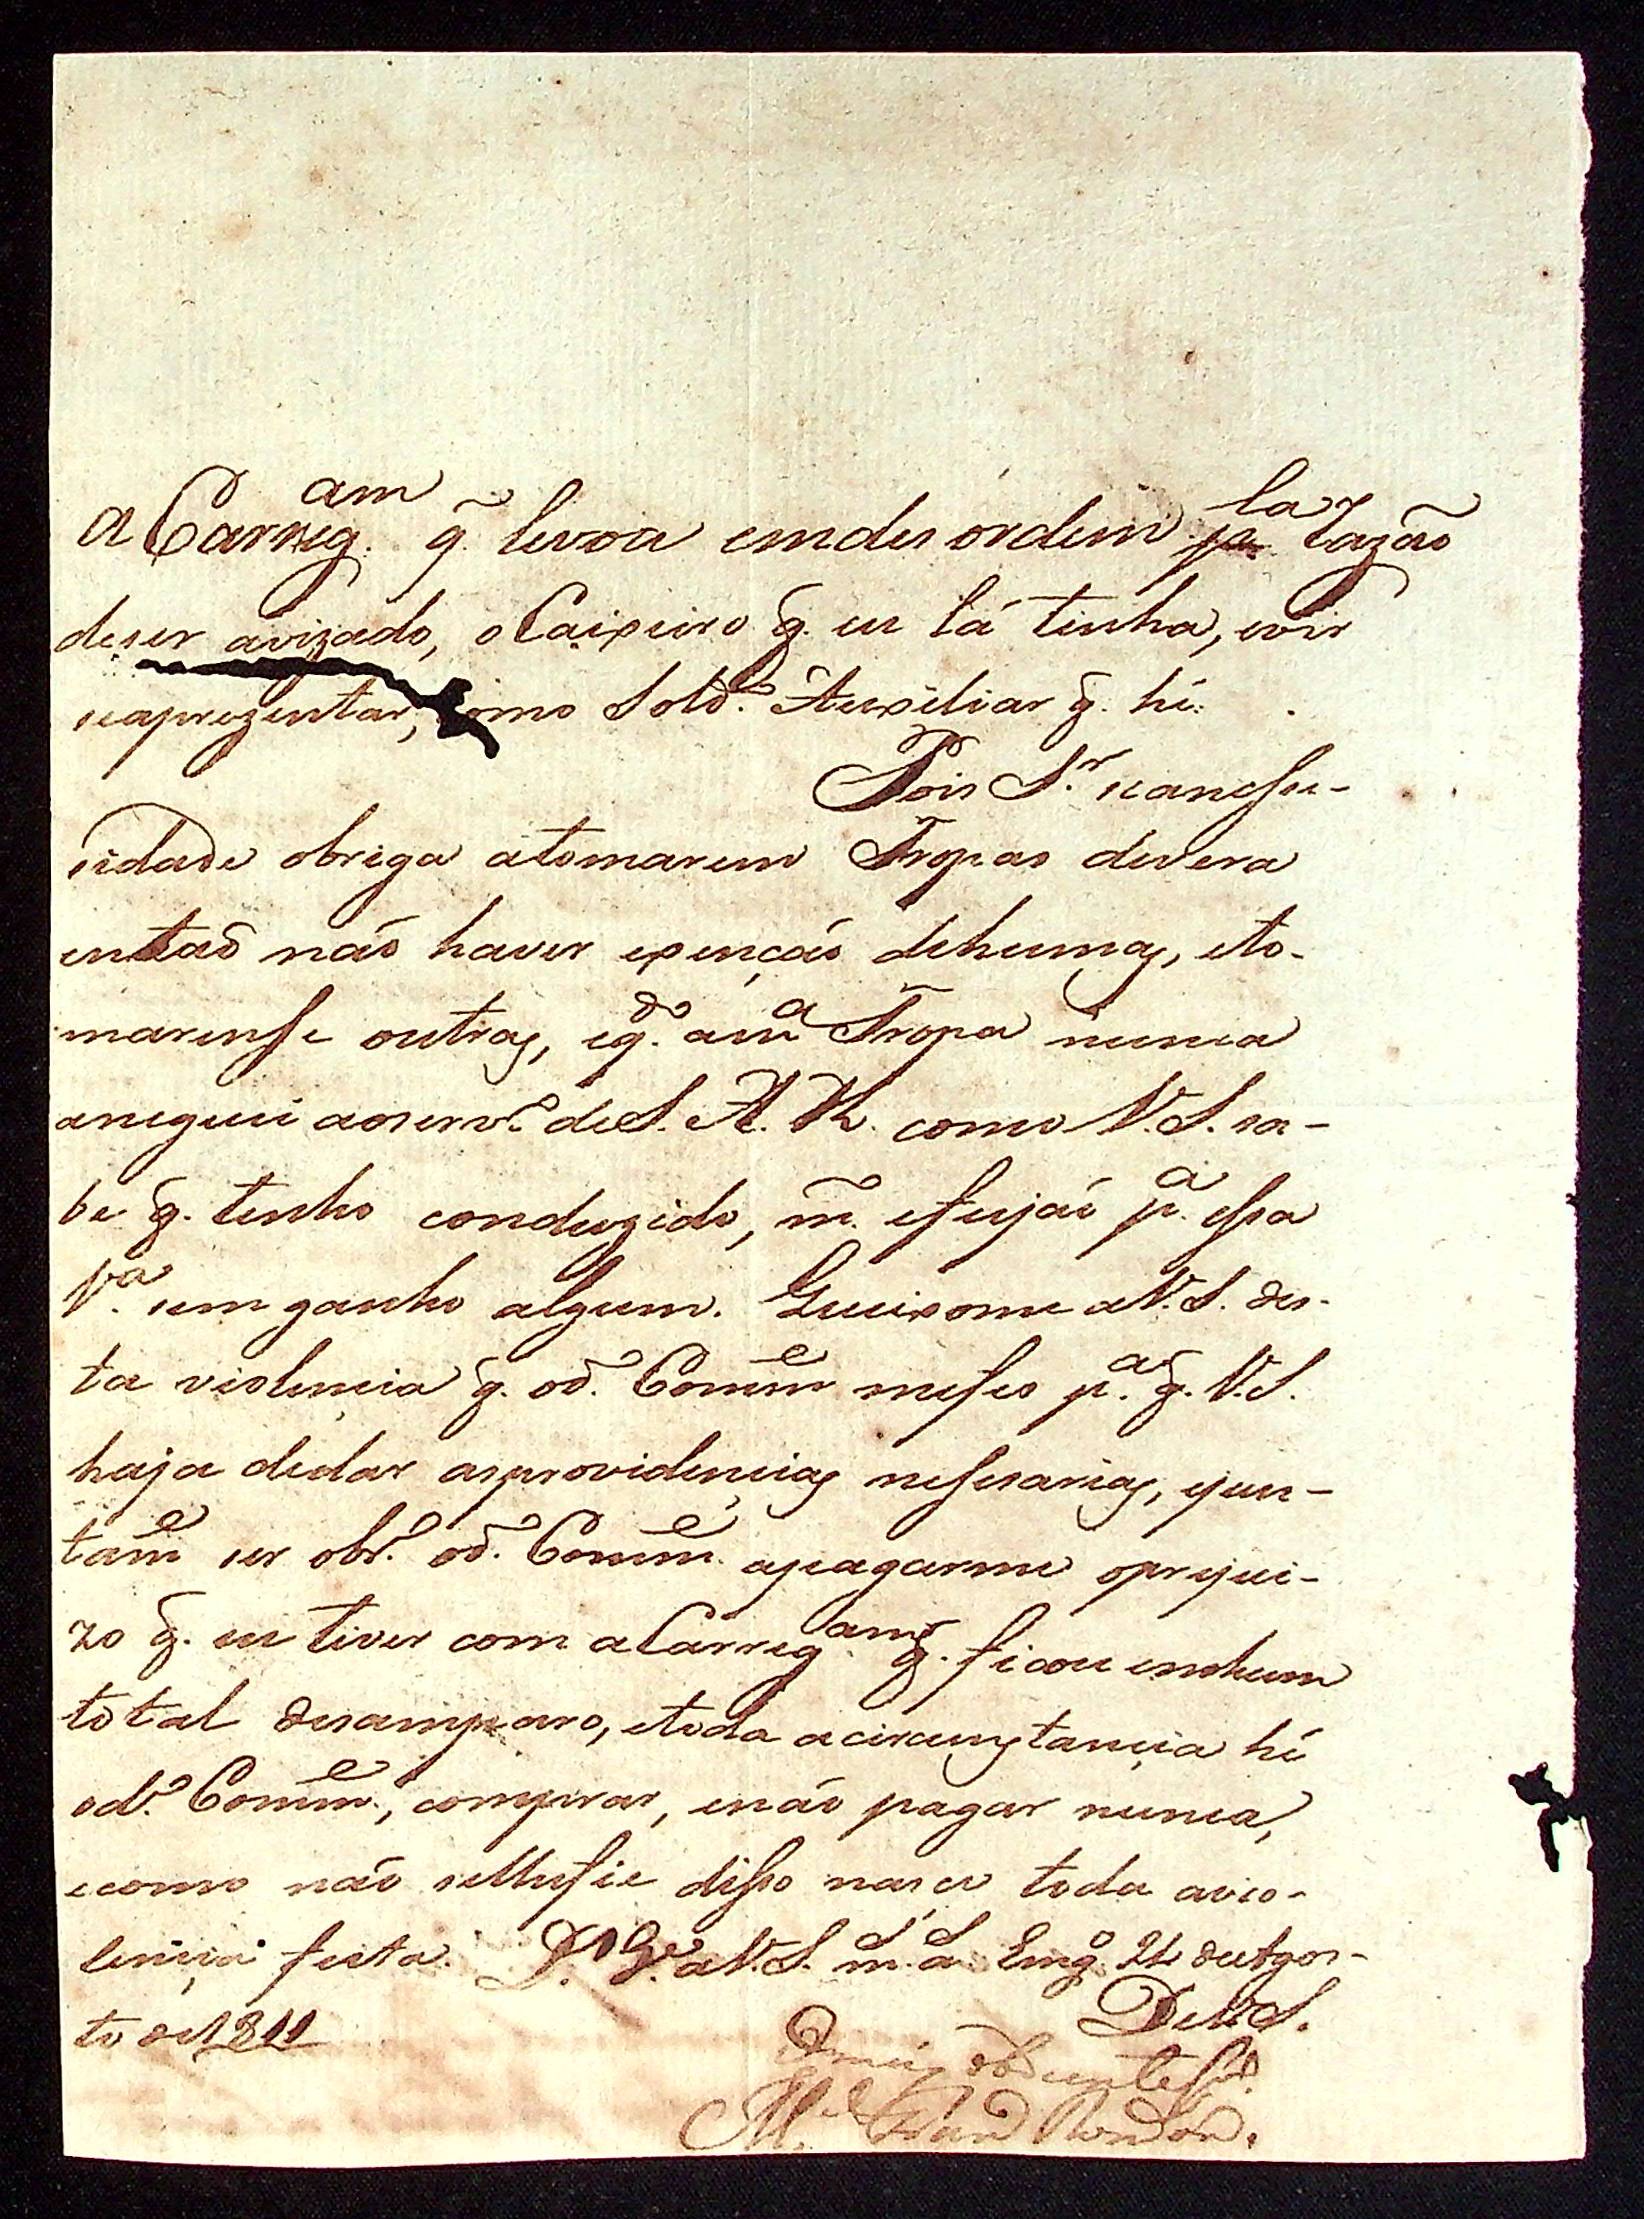 a Carreg.am q̃ levou emdesórdem p.la razaõ
deser avizado, o Caixeiro q̃. eu lá tinha, evir
seaprezentar, como Sold.o Auxiliar q̃. hé.
Pois S.r seanesse-
sidade obriga atomarem Tropas devera
entaõ naõ haver exençaõ dehumas, eto-
maremse outras, eq.do am.a Tropa nunca
aneguei aoserv.o deS. A. R. como V. S. sa-
be q̃. tenho conduzido, m. e feijaõ p.a essa
V.a sem ganho algum. Queixome aV. S. des-
ta violencia q̃. od.o Comm.e mefes p.a q̃. V. S.
haja dedar asprovidencias nesesarias, ejun-
tam.e ser obr.o od.o Comm.e apagarme oprejui-
zo q̃. eu tiver com a Carreg.am q̃. ficou emhum
total desamparo, etoda acircunstancia hé
od.o Comm.e, comprar, enaõ pagar nunca,
ecomo naõ sellhefie disso nasce toda avio-
lencia feita. D.s G.e aV. S. m.s a.s Eng.o 24 deAgos-
to de1811
DeV.S.
m.el